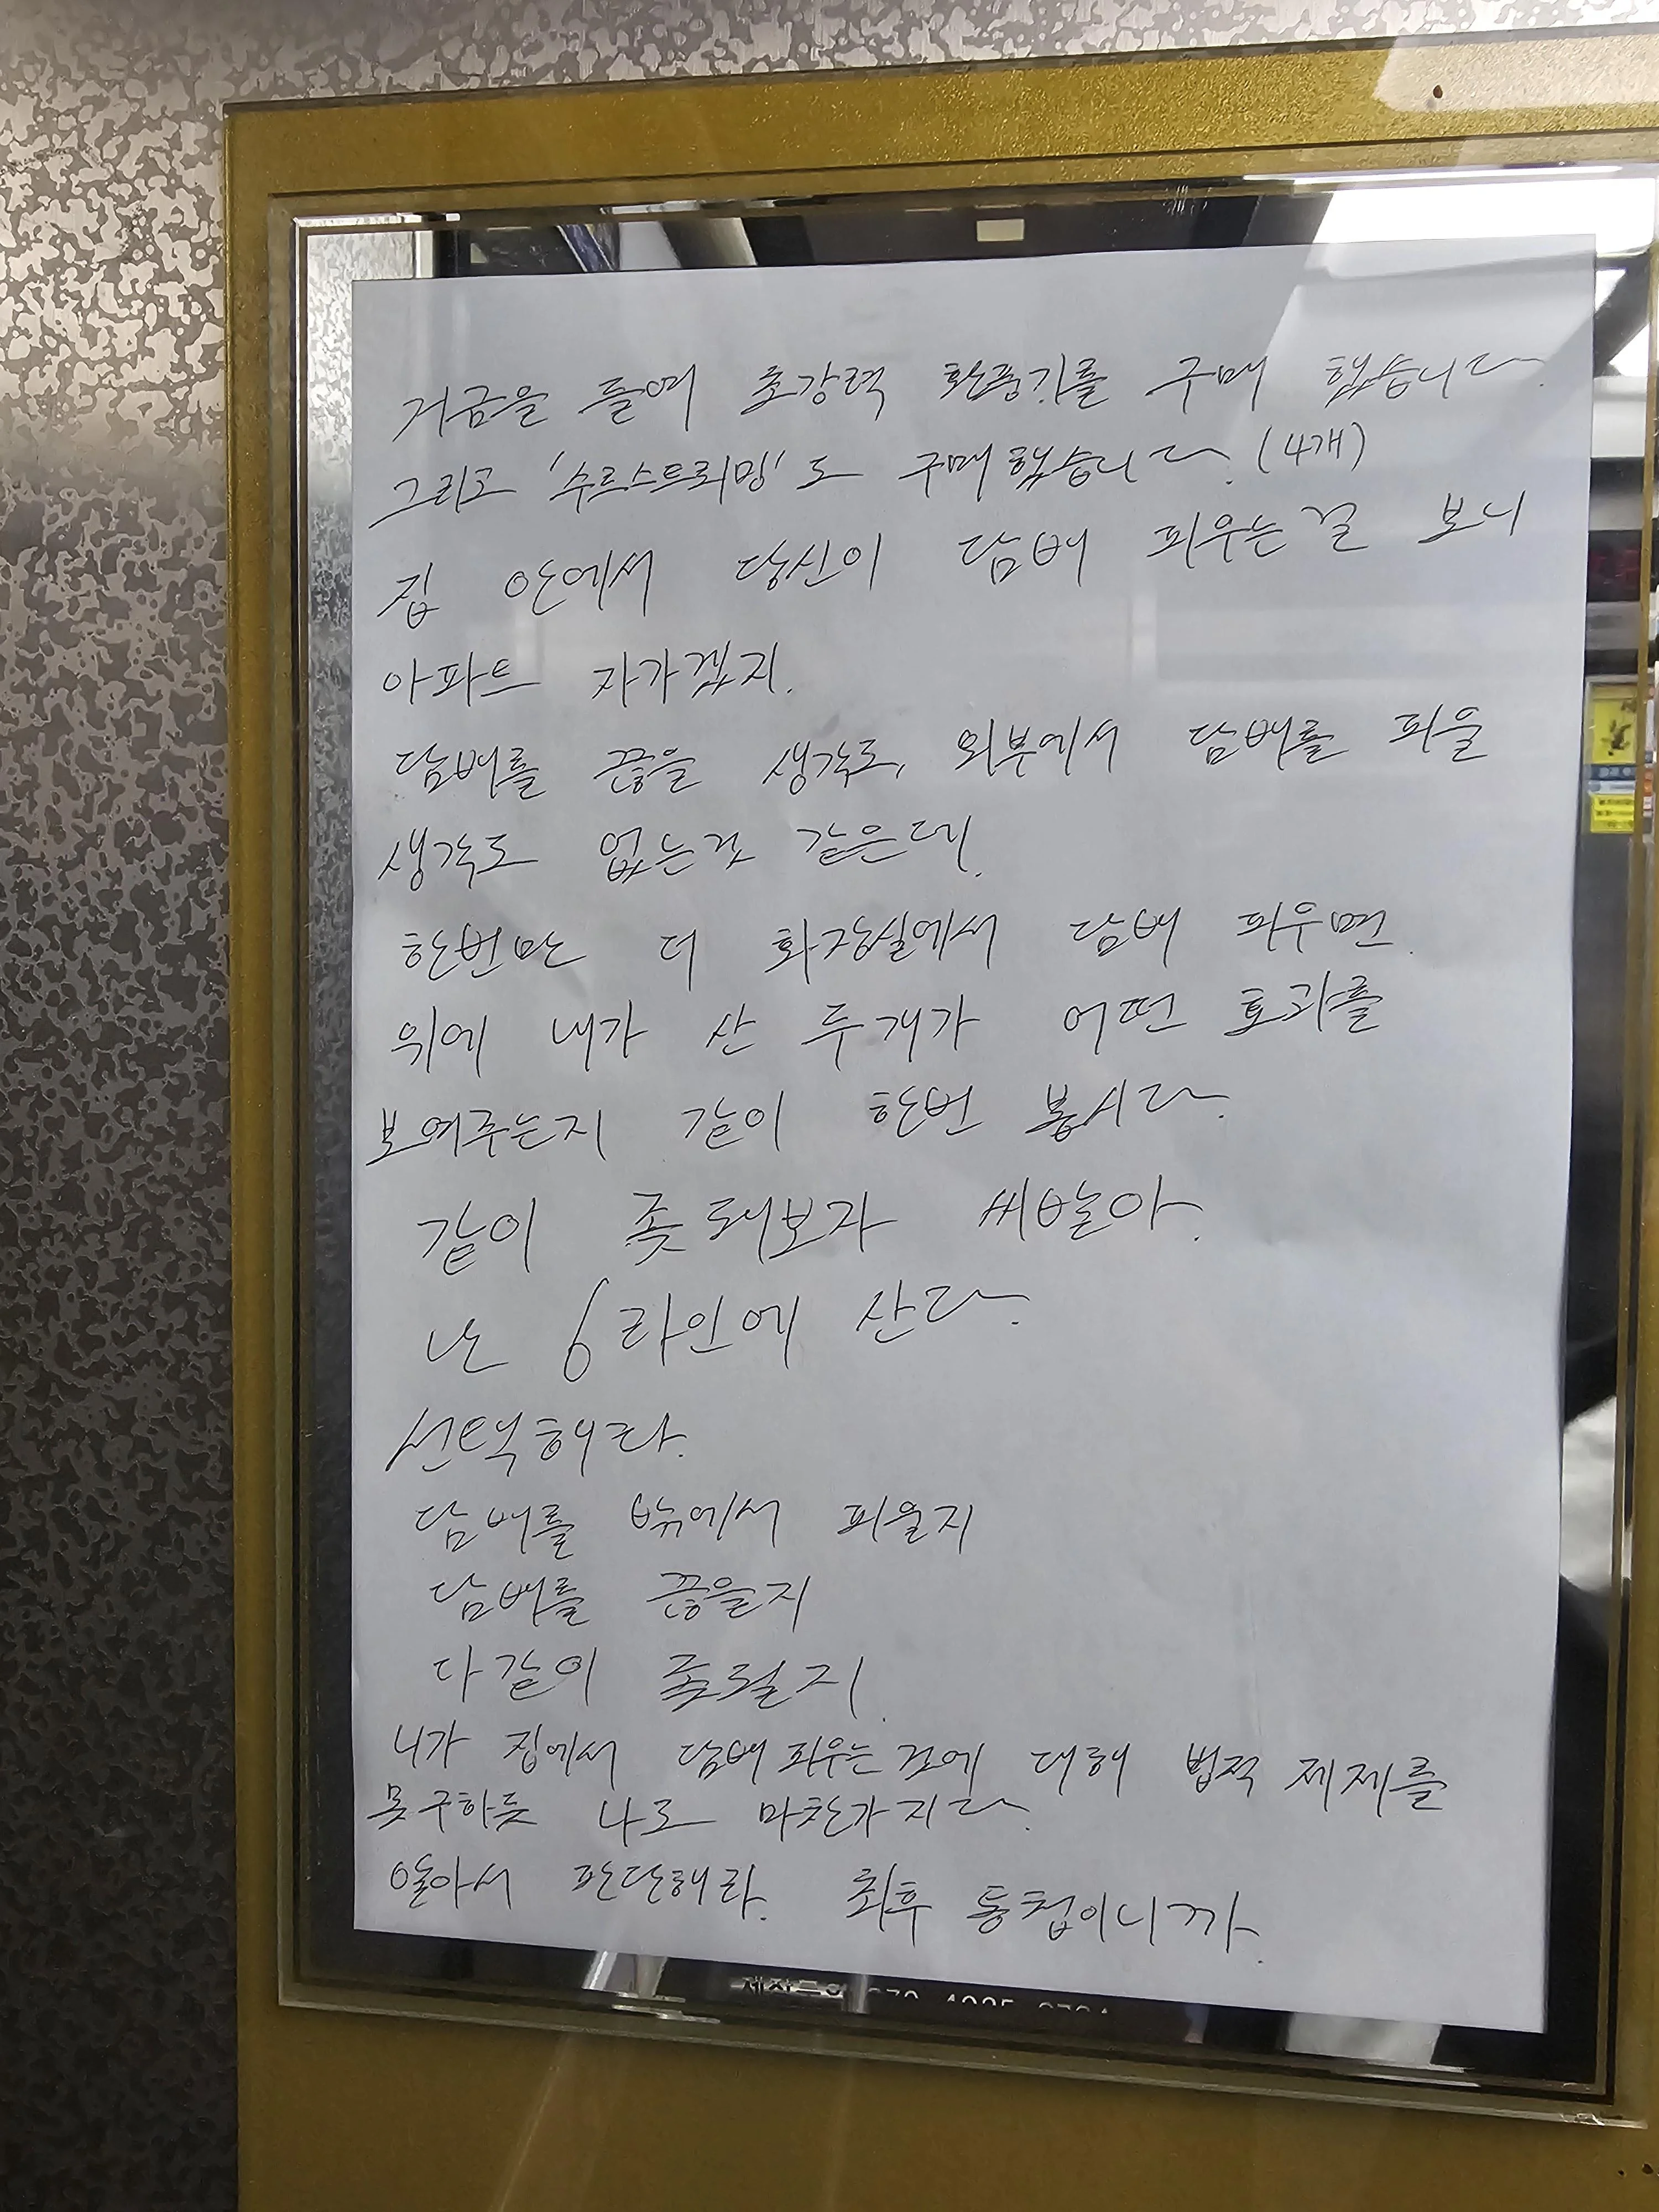 거금을 들여 초강력 환풍기를 구매 했습니다.
그리고 '수르스트뢰밍'도 구매했습니다. (4개)
집 안에서 당신이 담배 피우는걸 보니
아파트 자가겠지.
담배를 끊을 생각도, 외부에서 담배를 피울
생각도 없는것 같은데.
한번만 더 화장실에서 담배 피우면
위에 내가 산 두개가 어떤 효과를
보여주는지 같이 한번 봅시다.
같이 좆돼보자 씨발아.
난 6라인에 산다.
선택해라.
담배를 밖에서 피울지
담배를 끊을지
다같이 좆될지.
니가 집에서 담배 피우는 것에 대해 법적 제제를
못 구하듯 나도 마찬가지다.
알아서 판단해라. 최후 통첩이니까.